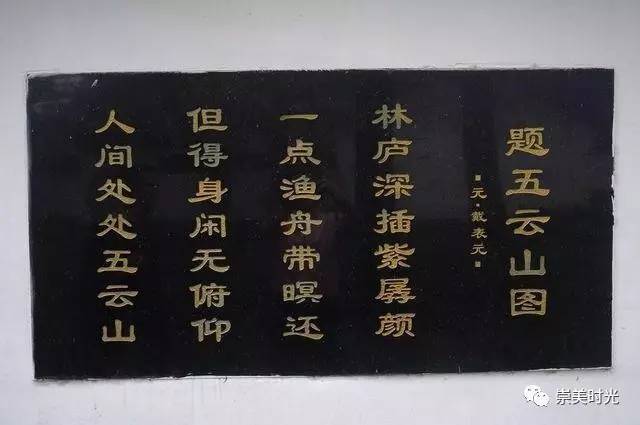 题五云山图
元·戴表元
林庐深插紫孱颜
一点渔舟带暝还
但得身闲无俯仰
人间处处五云山
崇美时光